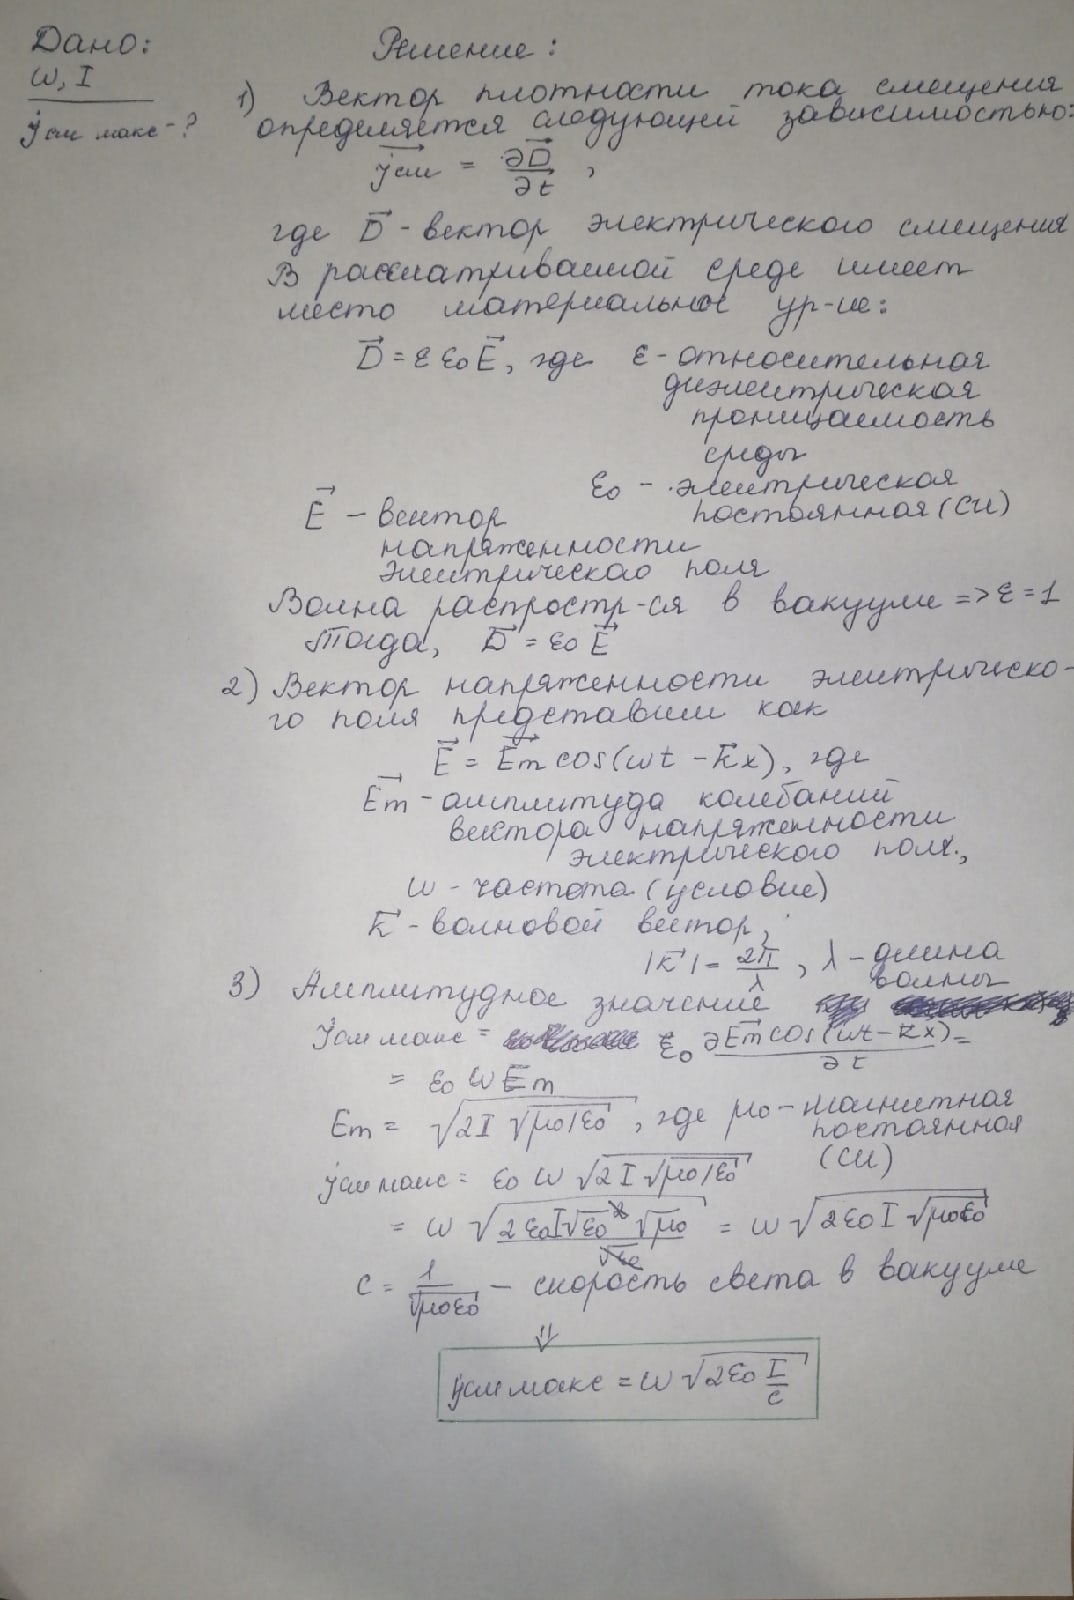 Дано:
ω, I
jсм макс - ?
Решение:
1) Вектор плотности тока смещения
определяется следующей зависимостью:
jсм = ∂D/∂t ,
где D - вектор электрического смещения
В рассматриваемой среде имеет
место материальное ур-ие:
D = ε ε0 E, где ε - относительная
диэлектрическая
проницаемость
среды
ε0 - электрическая
постоянная (СИ)
E - вектор
напряженности
электрического поля
Волна распростр-ся в вакууме => ε = 1
Тогда, D = ε0 E
2) Вектор напряженности электрическо-
го поля представим как
E = Em cos(ωt - kx), где
Em - амплитуда колебаний
вектора напряженности
электрического поля.,
ω - частота (условие)
k - волновой вектор,
|k| = 2π/λ , λ - длина
волны
3) Амплитудное значение
jсм макс = ε0 ∂Em cos(ωt - kx)/∂t =
= ε0 ω Em
Em = √(2I √(μ0/ε0)) , где μ0 - магнитная
постоянная
(СИ)
jсм макс = ε0 ω √(2I √(μ0/ε0))
= ω √(2ε0 I √ε0² √μ0 / √ε0) = ω √(2ε0 I √(μ0ε0))
c = 1/√(μ0ε0) - скорость света в вакууме
⇓
jсм макс = ω √(2ε0 I/c)